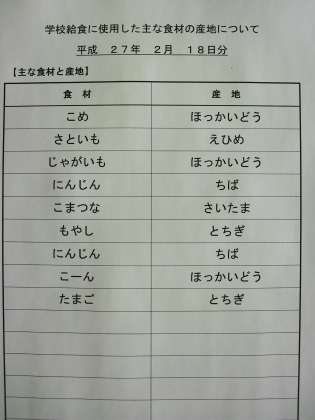 学校給食に使用した主な食材の産地について
平成 27年 2月 18日分
【主な食材と産地】
食材 産地
こめ ほっかいどう
さといも えひめ
じゃがいも ほっかいどう
にんじん ちば
こまつな さいたま
もやし とちぎ
にんじん ちば
こーん ほっかいどう
たまご とちぎ